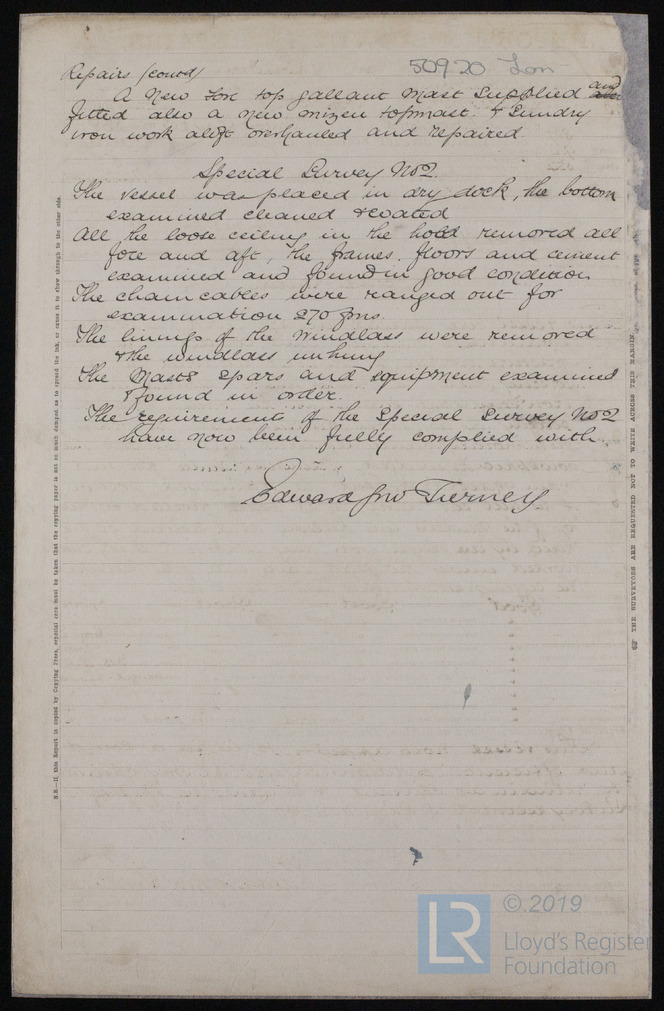 Repairs (contd)
50920 Lon
A New Fore top gallant mast supplied and
fitted also a new mizen topmast. & Sundry
iron work aloft overhauled and repaired.
Special Survey No2.
The vessel was placed in dry dock, the bottom
examined cleaned & coated
All the loose ceiling in the hold removed all
fore and aft, the frames. floors and cement
examined and found in good condition
The chain cables were ranged out for
examination 270 fms.
The linings of the Windlass were removed
& the windlass unhung
The Masts Spars and equipment examined
& found in order.
The requirements of the Special Survey No2
have now been fully complied with.
Edward Jno Tierney
N.B.—If this Report is copied by Copying Press, especial care must be taken that the copying paper is not so much damped as to spread the ink, or cause it to show through to the other side.
THE SURVEYORS ARE REQUESTED NOT TO WRITE ACROSS THIS MARGIN.
LR
© 2019
Lloyd's Register
Foundation